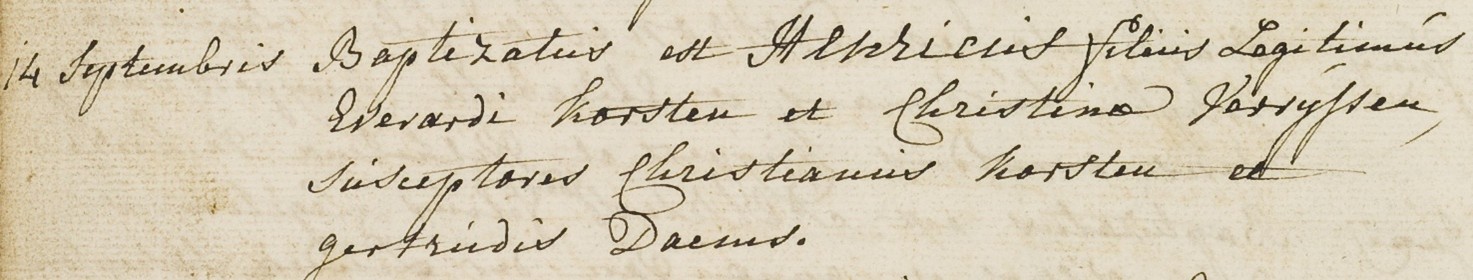 14 Septembris Baptizatus est Henricus filius Legitimus
Everardi Korsten et Christinæ Verryssen,
susceptores Christianus Korsten et
gertrudis Daems.